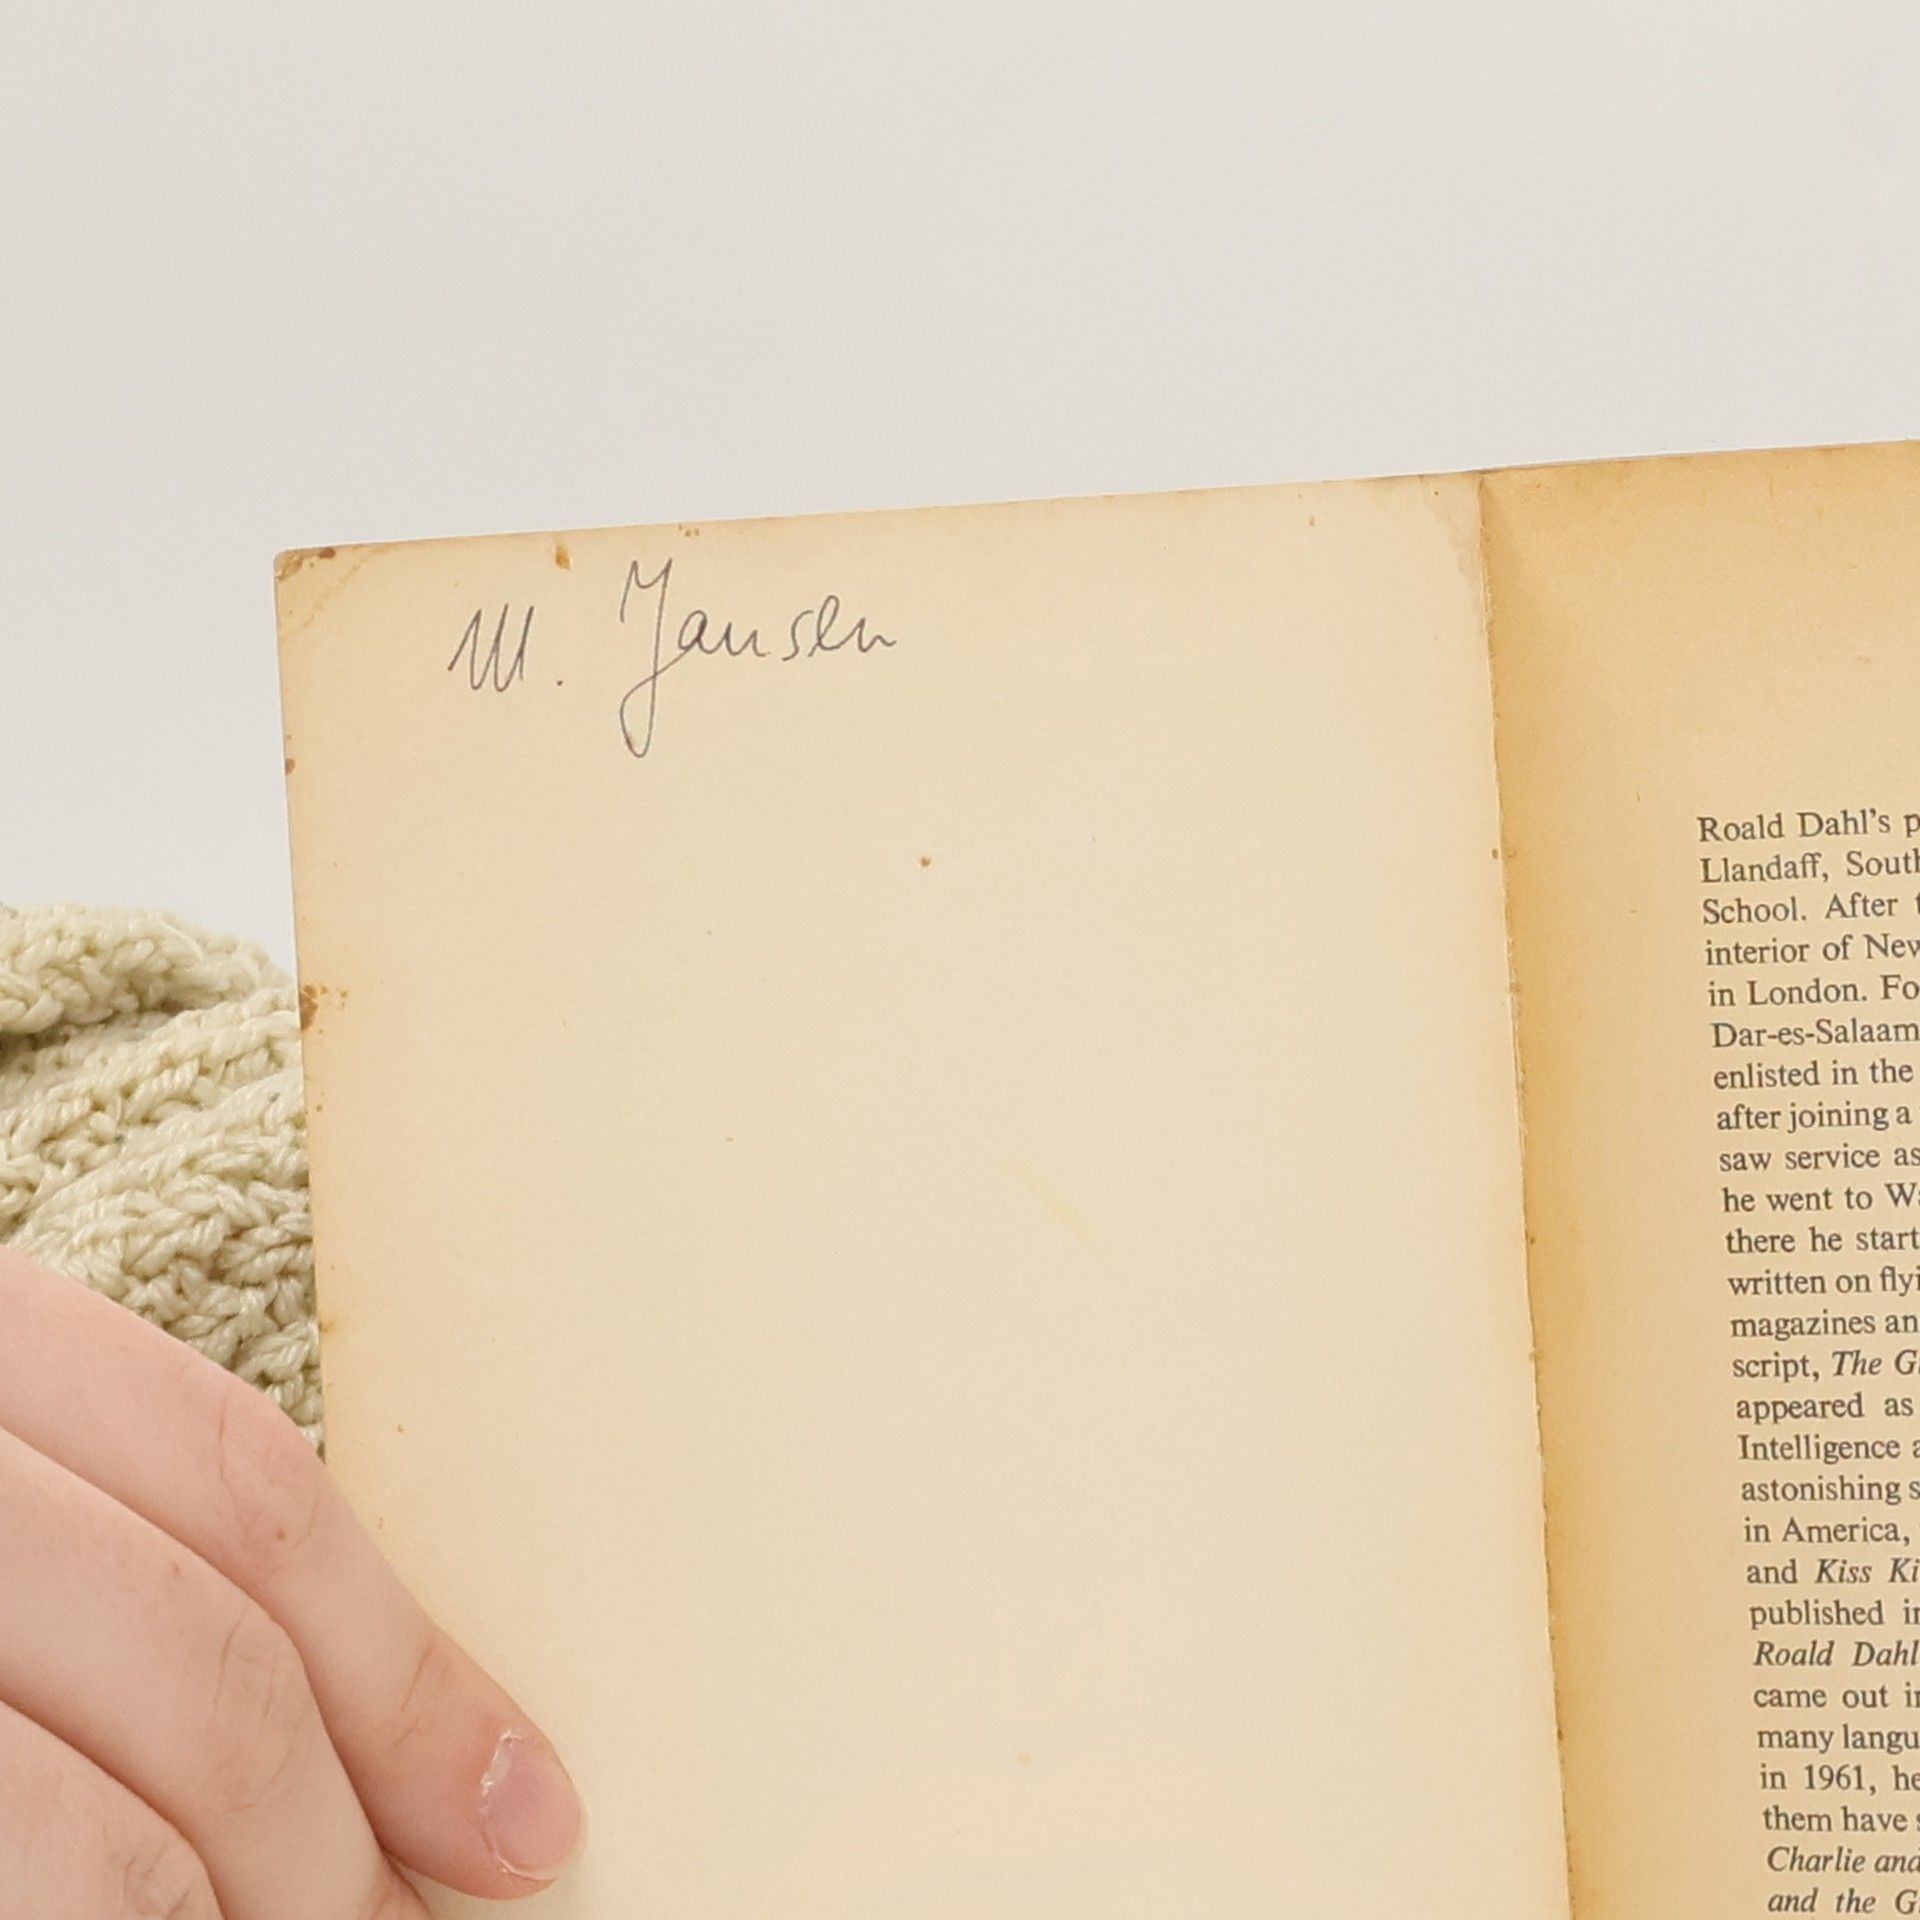 M. Jansen
Roald Dahl's p
Llandaff, South
School. After t
interior of New
in London. Fo
Dar-es-Salaam
enlisted in the
after joining a
saw service as
he went to Wa
there he start
written on flyi
magazines an
script, The G
appeared as
Intelligence a
astonishing s
in America,
and Kiss Ki
published in
Roald Dahl
came out in
many langu
in 1961, he
them have s
Charlie and
and the G